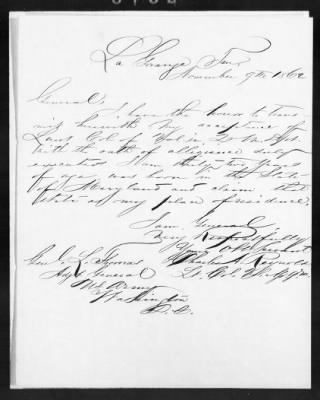 La Grange Ten
November 9th 1862
General,
I have the honor to trans
mit herewith my acceptance of
Lieut Col of
with the oath of allegiance duly
executed. I am thirty two years
of age was born in the State
of Maryland and claim that
State as my place of residence.
I am General
Very Respectfully
Your Obt Servant
Charles A Reynolds
Lt. Col.
Gen. L. Thomas
Adjt General
U S Army
Washington
D.C.